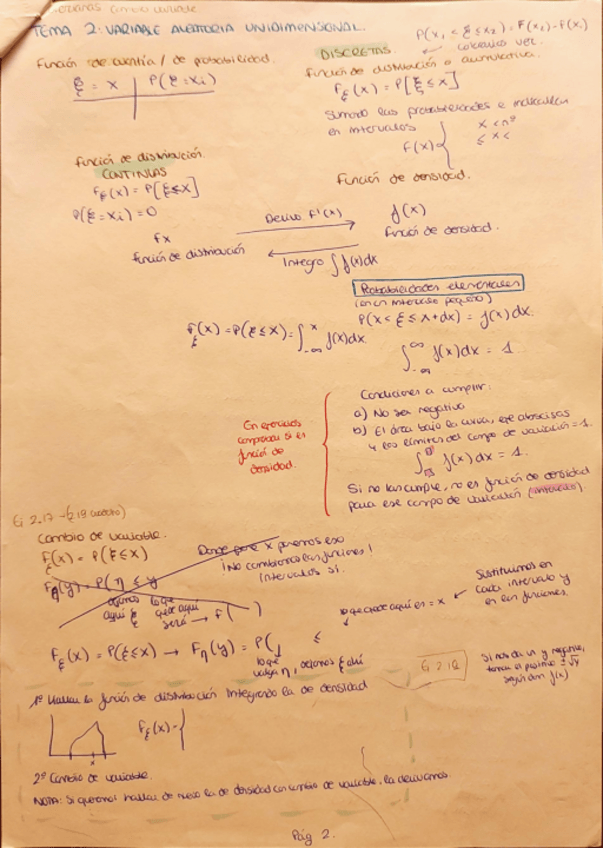 TEMA 2: VARIABLE ALEATORIA UNIDIMENSIONAL.
P(x₁ < ξ ≤ x₂) = F(x₂) - F(x₁)
Función de cuantía / de probabilidad.
ξ = x | P(ξ = xi)
DISCRETAS.
Función de distribución o acumulativa.
Fξ(x) = P[ξ ≤ x]
Sumando las probabilidades e
en intervalos
F(x) = {
x < nº
≤ x <
Función de distribución.
CONTINUAS
Fξ(x) = P[ξ ≤ x]
P(ξ = xi) = 0
Función de densidad.
Fx
función de distribución
Derivo F'(x)
Integro ∫ f(x) dx
f(x)
Función de densidad.
Probabilidades elementales
(en un intervalo pequeño)
P(x < ξ ≤ x + dx) = f(x) dx.
Fξ(x) = P(ξ ≤ x) = ∫_{-∞}^{x} f(x) dx
∫_{-∞}^{∞} f(x) dx = 1
En ejercicios
comprobar si es
función de
densidad.
Condiciones a cumplir:
a) No sea negativa
b) El área bajo la curva, eje abscisas
y los límites del campo de variación = 1.
∫ f(x) dx = 1.
Si no las cumple, no es función de densidad
para ese campo de variación (intervalo).
Ej 2.17 →
Cambio de variable.
Fξ(x) = P(ξ ≤ x)
Fη(y) = P(η ≤ y
Donde x ponemos eso
¡No cambiamos las funciones!
Intervalos sí.
aquí ξ
lo que
quede aquí
será → F( )
Fξ(x) = P(ξ ≤ x) → Fη(y) = P( ≤
lo que
valga η, dejamos ξ ahí
lo que quede aquí es = x
Sustituimos en
cada intervalo y
en las funciones.
Ej 2.12
Si nos da un y negativo,
según den f(x)
1º Hallar la función de distribución integrando la de densidad
Fξ(x) = {
x
2º Cambio de variable.
NOTA: Si queremos hallar de nuevo la de densidad con cambio de variable, la derivamos.
Pág 2.